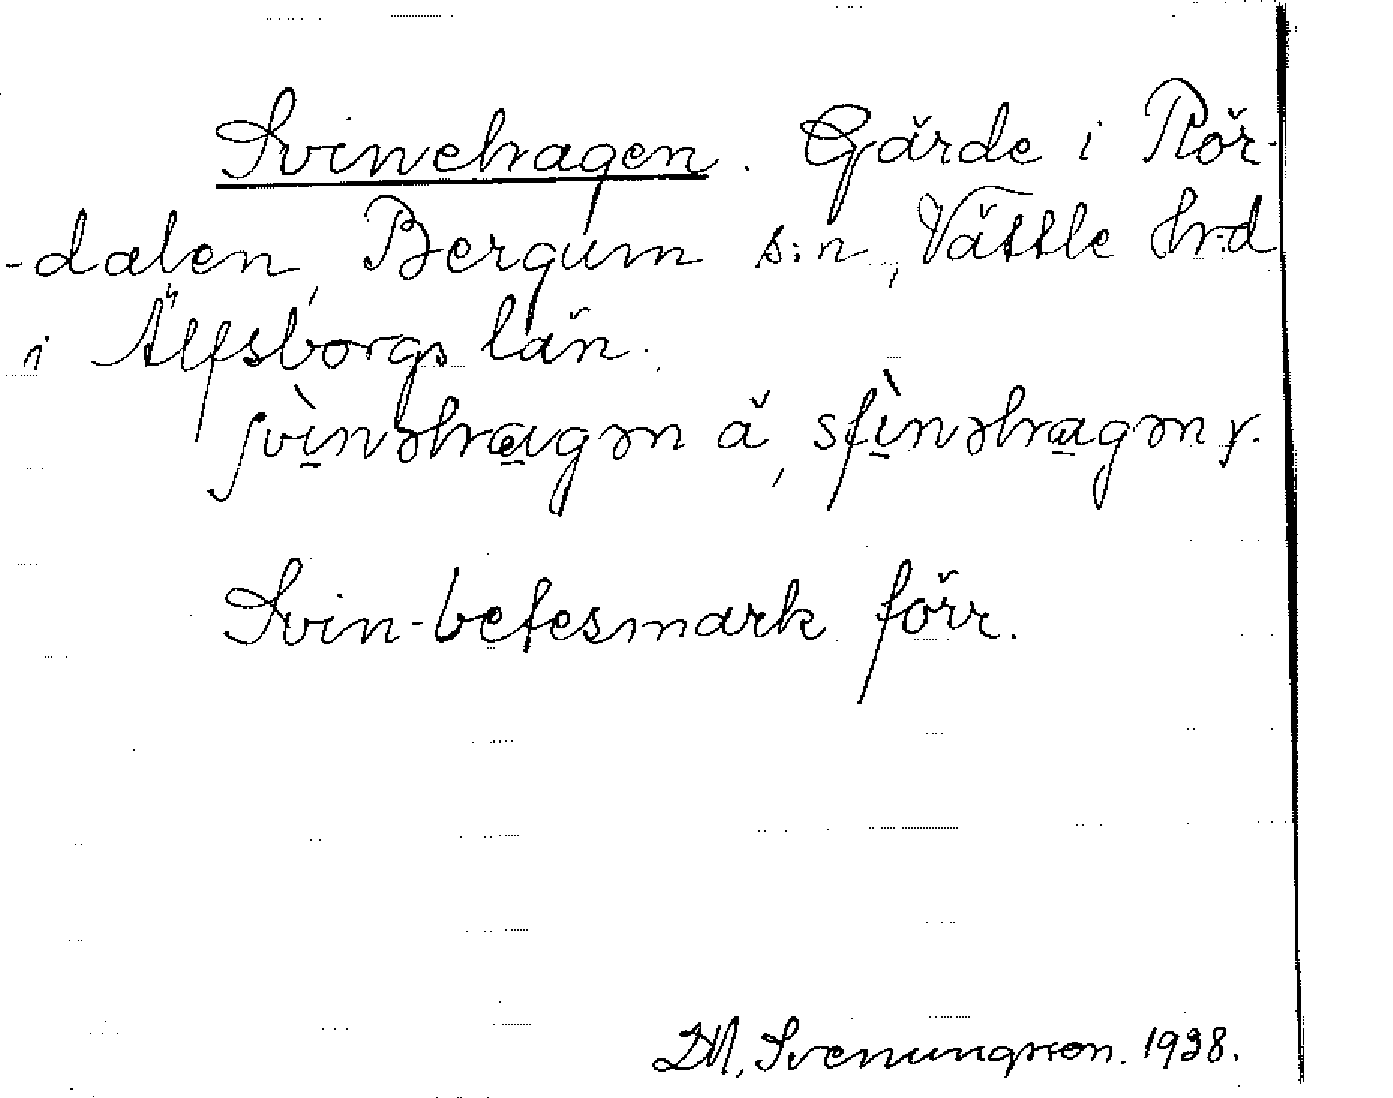 Svinehagen. Gärde i Rör-
-dalen, Bergum s:n, Vättle hrd
i Älfsborgs län.
svìnəhagən ä, sfìnəhagən y.
Svin-betesmark förr.
D.M. Svenungsson. 1938.